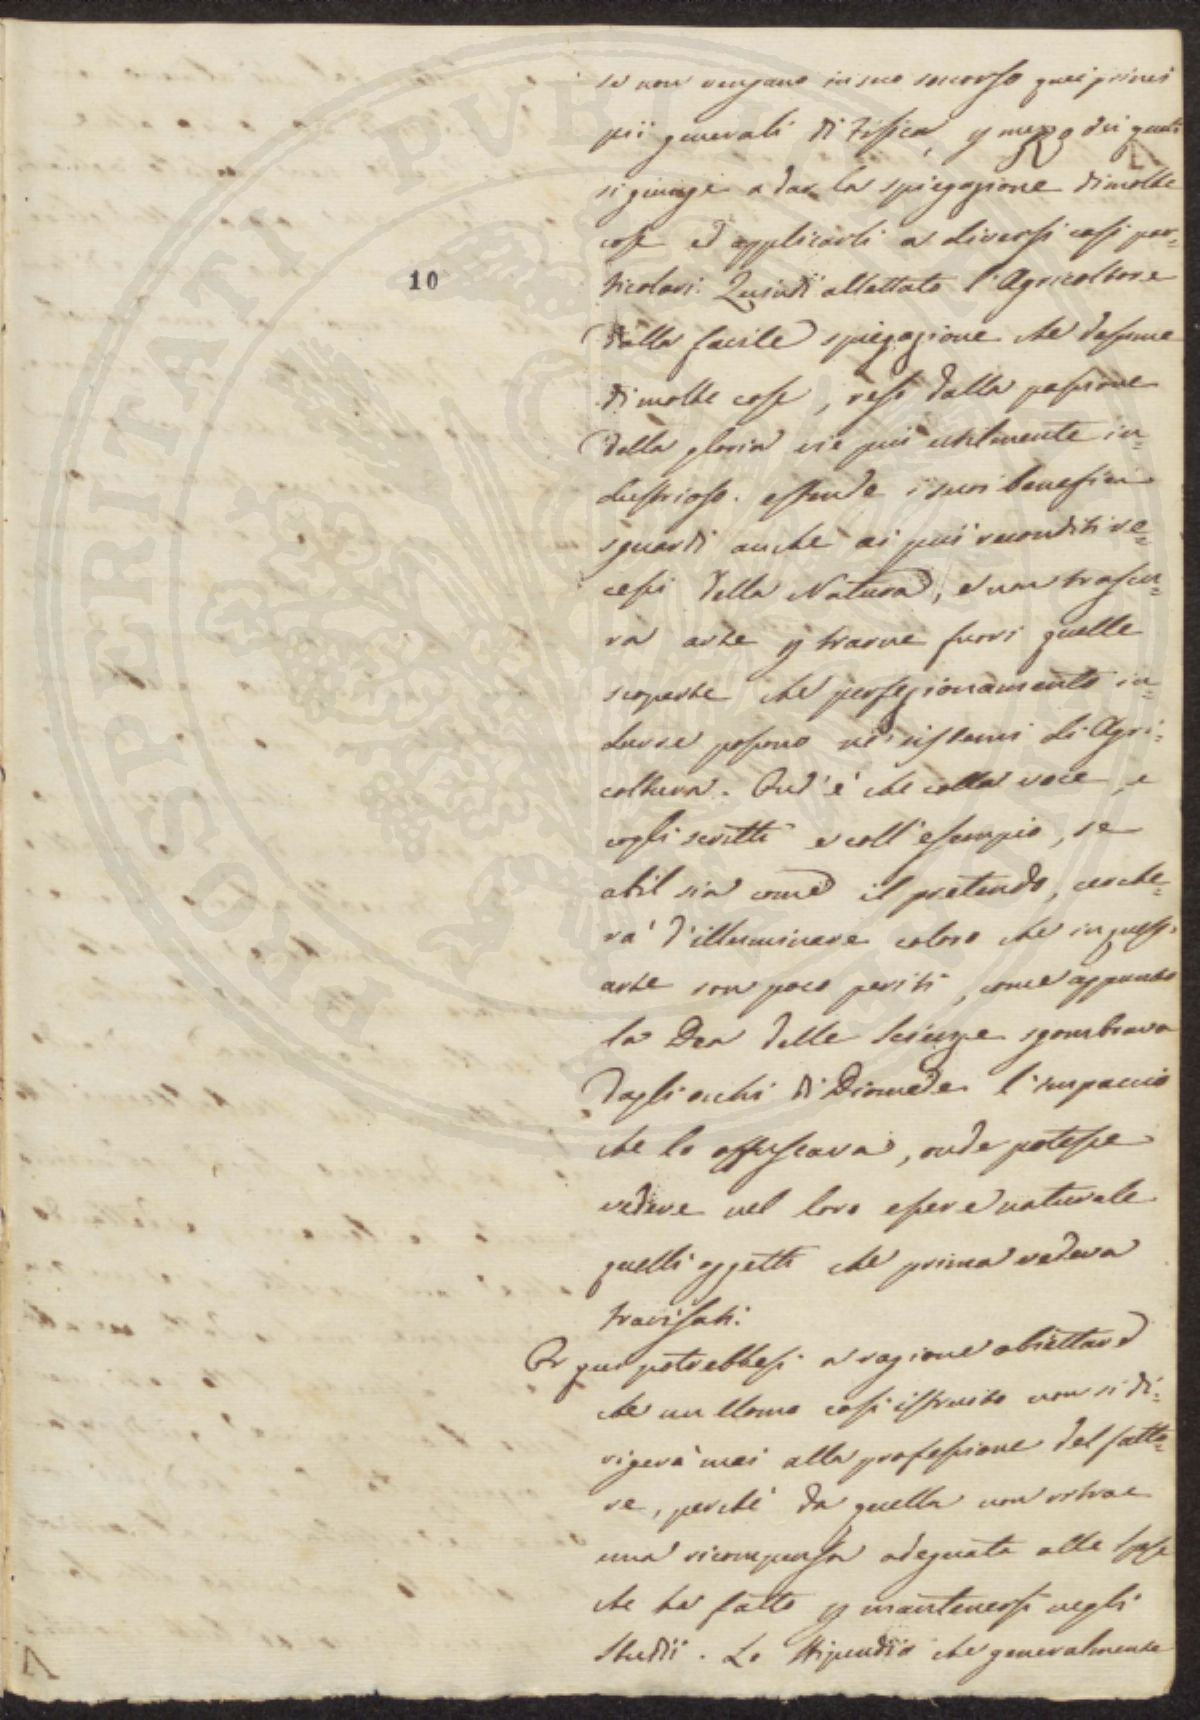 se non vengano in suo soccorso quei princi
pii generali di Fisica, p mezzo dei quali
si giunge a dar la spiegazione di molte
cose ed applicarli a diversi casi par=
ticolari. Quindi allettato l'Agricoltore
dalla facile spiegazione che desume
di molte cose, reso dalla passione
della gloria vie più utilmente in=
dustrioso. estende i suoi benefici
sguardi anche ai più reconditi re=
cessi della Natura, e non trascu=
ra arte p trarne fuori quelle
scoperte che perfezionamento in=
durre possono ne' sistemi di Agri=
coltura. Ond'è che colla voce, e
cogli scritti e coll'esempio, se
abil sia come il pretendo, cerche=
rà d'illuminare coloro che in quest'
arte son poco periti, come appunto
la Dea delle Scienze sgombrava
dagli occhi di Diomede l'impaccio
che lo offuscava, onde potesse
vedere nel loro essere naturale
quelli oggetti che prima vedeva
travisati.
Or qui potrebbesi a ragione obiettare
che un Uomo così istruito non si di=
rigerà mai alla professione del fatto=
re, perchè da quella non ritrae
una ricompensa adeguata alle spese
che ha fatto p mantenersi negli
Studii. Lo Stipendio che generalmente
10
PROSPERITATI PUBLICAE AUGENDAE